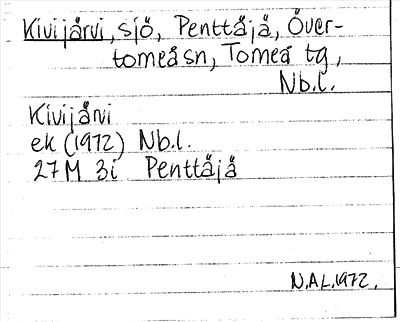 Kivijärvi, sjö, Penttäjä, Över-
torneå sn, Torneå tg,
Nb.l.
Kivijärvi
ek (1972) Nb.l.
27M 3i Penttäjä
N.Ä.L.1972.